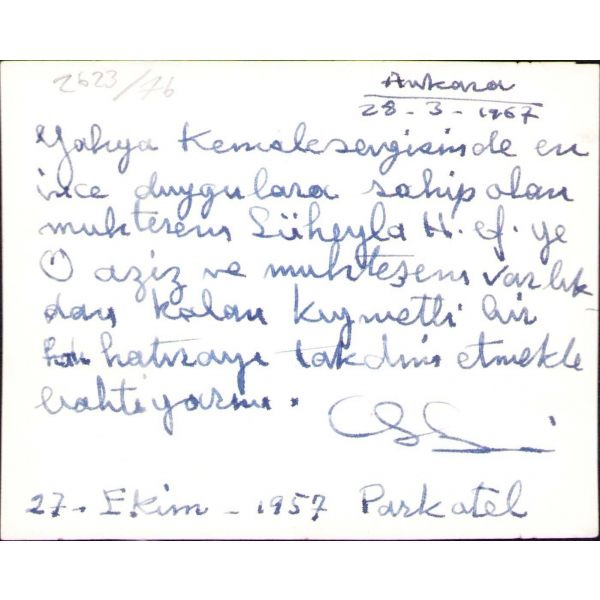 2623/76
Ankara
28-3-1967
Yahya Kemal sevgisinde en
ince duygulara sahip olan
muhterem Süheyla H. ef. ye
O aziz ve muhteşem varlık
dan kalan kıymetli bir
hatırayı takdim etmekle
bahtiyarım.
27. Ekim - 1957 Parkotel